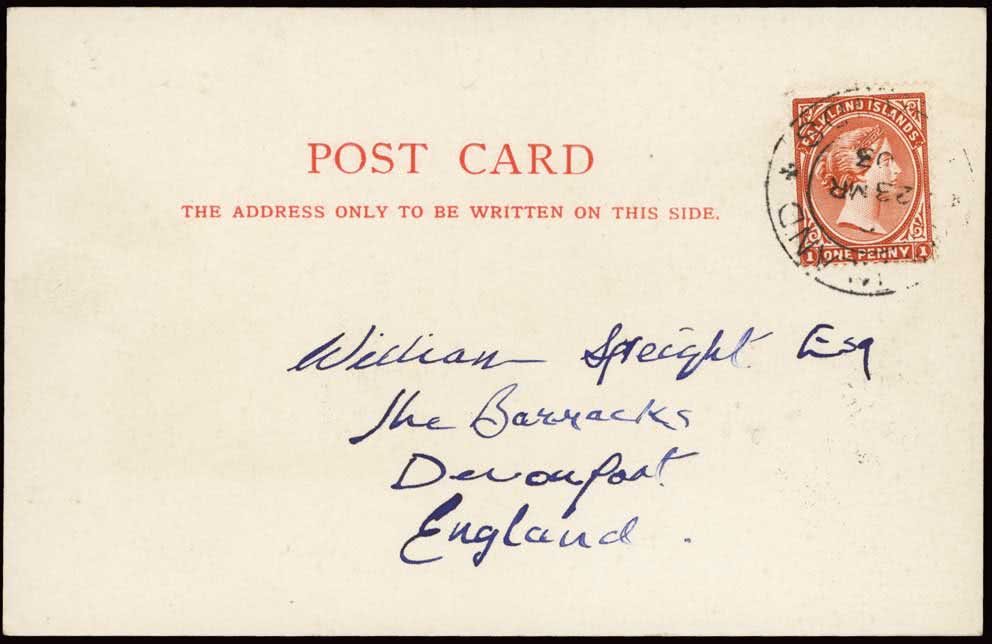 POST CARD
THE ADDRESS ONLY TO BE WRITTEN ON THIS SIDE.
LAND ISLANDS
1 ONE PENNY 1
23 MR
03
William Speight Esq
The Barracks
Devonport
England.